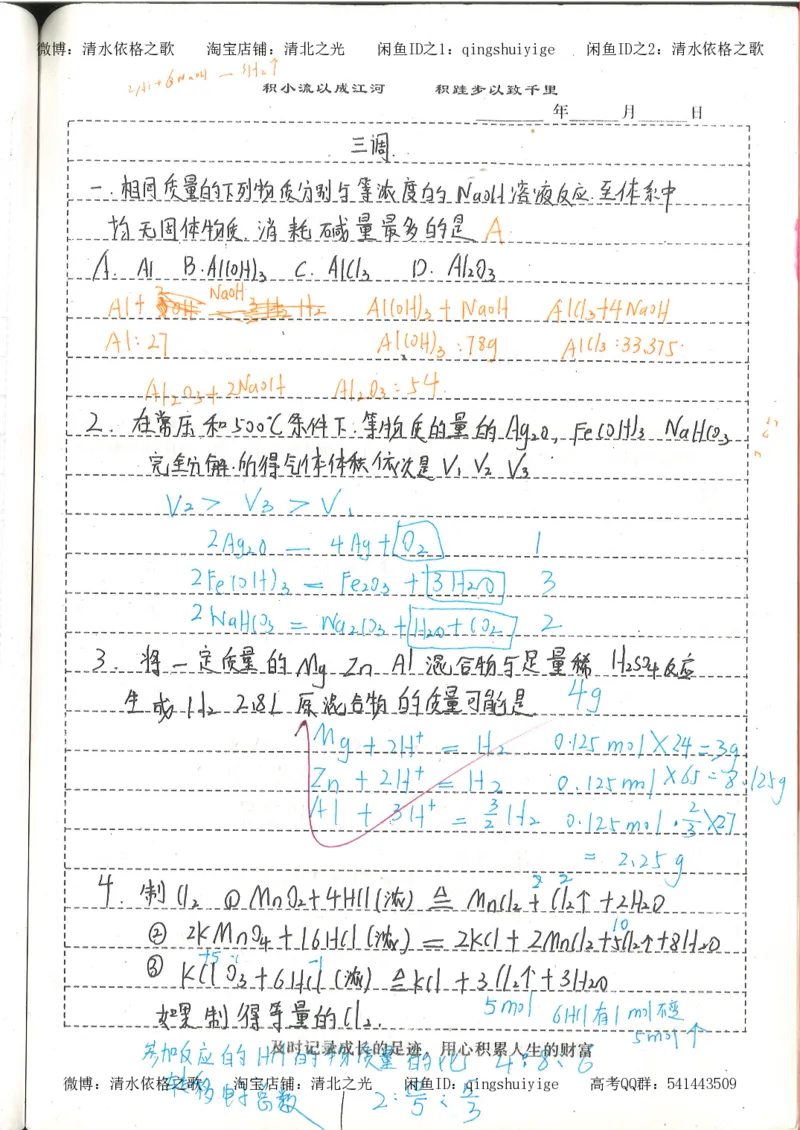 微博：清水依格之歌 淘宝店铺：清北之光 闲鱼ID之1：qingshuiyige 闲鱼ID之2：清水依格之歌
2Al+6NaOH — 3H₂↑
积小流以成江河 积跬步以致千里
年 月 日
三调.
一.相同质量的下列物质分别与等浓度的NaOH溶液反应.至体系中
均无固体物质.消耗碱量最多的是 A
A. Al B.Al(OH)₃ C. AlCl₃ D. Al₂O₃
Al+ NaOH Al(OH)₃+NaOH AlCl₃+4NaOH
Al:27 Al(OH)₃:78g AlCl₃:33.375
Al₂O₃+2NaOH Al₂O₃=54.
2. 在常压和500℃条件下.等物质的量的Ag₂O, Fe(OH)₃ NaHCO₃
完全分解.所得气体体积依次是V₁ V₂ V₃
V₂> V₃ > V₁
2Ag₂O — 4Ag+O₂ 1
2Fe(OH)₃ = Fe₂O₃ +3H₂O 3
2NaHCO₃ = Na₂CO₃+H₂O+CO₂ 2
3. 将一定质量的Mg Zn Al混合物与足量稀H₂SO₄反应
生成H₂ 2.8L 原混合物的质量可能是 4g
Mg+2H⁺ = H₂ 0.125mol×24=3g
Zn+2H⁺ = H₂ 0.125mol×65=8.125g
Al + 3H⁺ = 3/2 H₂ 0.125mol·2/3×27
= 2.25g
4. 制Cl₂ ①MnO₂+4HCl(浓) ≜ MnCl₂+Cl₂↑+2H₂O
② 2KMnO₄+16HCl(浓)=2KCl+2MnCl₂+5Cl₂↑+8H₂O
③ KClO₃+6HCl(浓)≜KCl+3Cl₂↑+3H₂O
如果制得等量的Cl₂.
5mol 6HCl有1mol不变
5mol↑
及时记录成长的足迹，用心积累人生的财富
参加反应的HCl的物质量的比 4:8:6
微博：清水依格之歌 淘宝店铺：清北之光 闲鱼ID：qingshuiyige 高考QQ群：541443509
转移电子总数 2:10/5:5/3